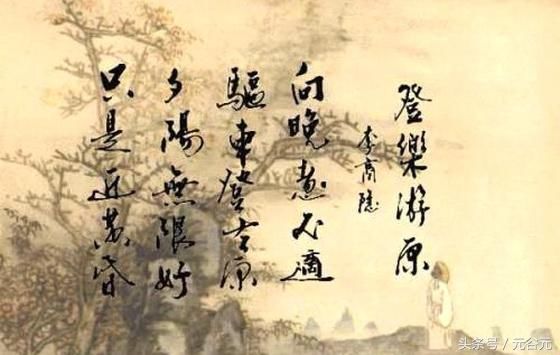 登樂游原
李商隱
向晚意不適
驅車登古原
夕陽無限好
只是近黃昏
头条号 / 元谷元